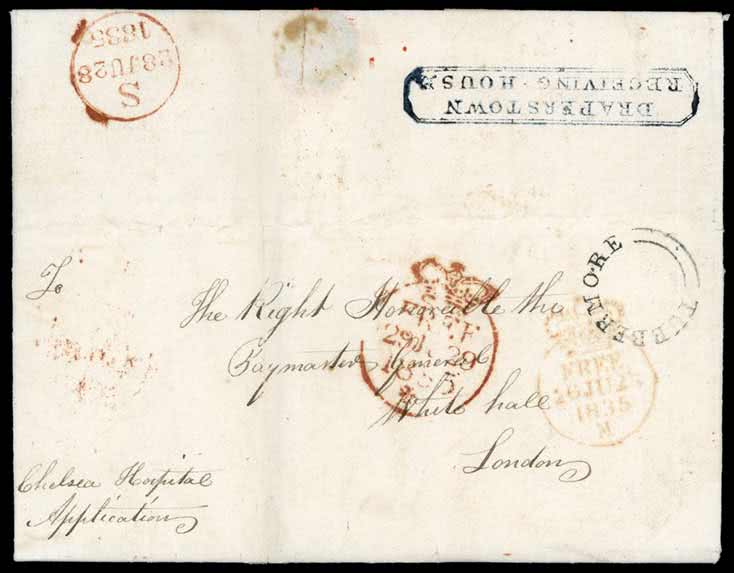 S
28JU28
1835
DRAPERSTOWN
RECEIVING·HOUSE
TUBBERMORE
To
The Right Honorable the
Paymaster General
White hall
London
FREE
1835
M
Chelsea Hospital
Application